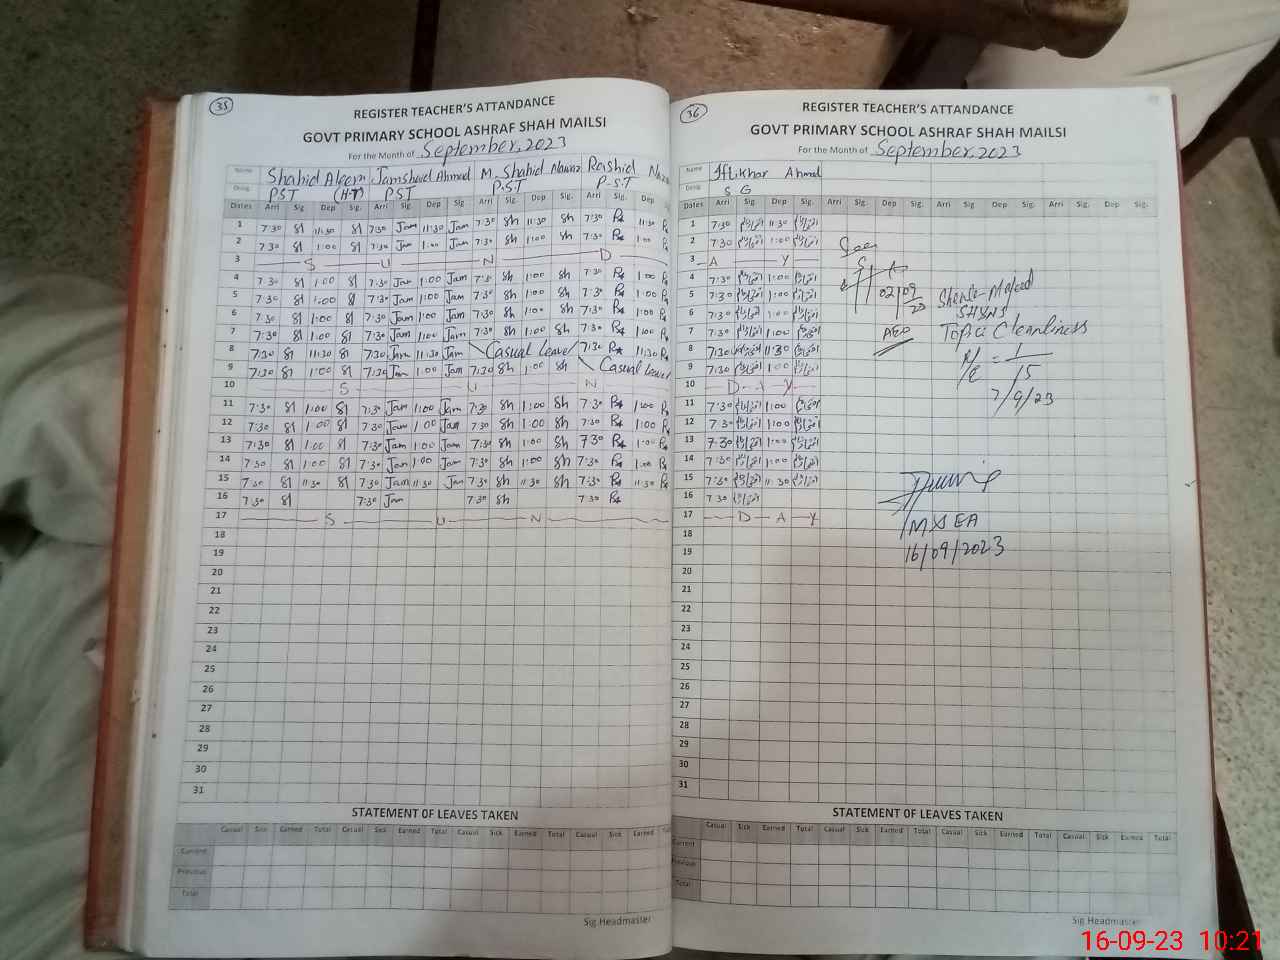 35
REGISTER TEACHER'S ATTANDANCE
GOVT PRIMARY SCHOOL ASHRAF SHAH MAILSI
For the Month of September, 2023
Name Shahid Aleem Jamshaid Ahmad M. Shahid Nawaz Rashid
Desig. PST (H-T) PST P.ST P-S-T
Dates Arri Sig Dep Sig. Arri Sig. Dep Sig. Arri Sig. Dep Sig. Arri Sig. Dep
1 7:30 11:30 7:30 Jam 11:30 Jam 7:30 Sh 11:30 Sh 7:30 11:30
2 7:30 1:00 7:30 Jam 1:00 Jam 7:30 Sh 1:00 Sh 7:30 1:00
3 S U N D
4 7:30 1:00 7:30 Jam 1:00 Jam 7:30 Sh 1:00 Sh 7:30 1:00
5 7:30 1:00 7:30 Jam 1:00 Jam 7:30 Sh 1:00 Sh 7:30 1:00
6 7:30 1:00 7:30 Jam 1:00 Jam 7:30 Sh 1:00 Sh 7:30 1:00
7 7:30 1:00 7:30 Jam 1:00 Jam 7:30 Sh 1:00 Sh 7:30 1:00
8 7:30 11:30 7:30 Jam 11:30 Jam Casual leave 7:30 11:30
9 7:30 1:00 7:30 Jam 1:00 Jam 7:30 Sh 1:00 Sh Casual leave
10 S U N
11 7:30 1:00 7:30 Jam 1:00 Jam 7:30 Sh 1:00 Sh 7:30 1:00
12 7:30 1:00 7:30 Jam 1:00 Jam 7:30 Sh 1:00 Sh 7:30 1:00
13 7:30 1:00 7:30 Jam 1:00 Jam 7:30 Sh 1:00 Sh 7:30 1:00
14 7:30 1:00 7:30 Jam 1:00 Jam 7:30 Sh 1:00 Sh 7:30 1:00
15 7:30 11:30 7:30 Jam 11:30 Jam 7:30 Sh 11:30 Sh 7:30 11:30
16 7:30 7:30 Jam 7:30 Sh 7:30
17 S U N
18
19
20
21
22
23
24
25
26
27
28
29
30
31
STATEMENT OF LEAVES TAKEN
Casual Sick Earned Total Casual Sick Earned Total Casual Sick Earned Total Casual Sick Earned
Current
Previous
Total
Sig.Headmaster
36
REGISTER TEACHER'S ATTANDANCE
GOVT PRIMARY SCHOOL ASHRAF SHAH MAILSI
For the Month of September, 2023
Name Iftikhar Ahmad
Desig. S G
Dates Arri Sig. Dep Sig. Arri Sig. Dep Sig. Arri Sig. Dep Sig. Arri Sig. Dep Sig.
1 7:30 11:30
2 7:30 1:00
3 A Y
4 7:30 1:00
5 7:30 1:00
6 7:30 1:00
7 7:30 1:00
8 7:30 11:30
9 7:30 1:00
10 D A Y
11 7:30 1:00
12 7:30 1:00
13 7:30 1:00
14 7:30 1:00
15 7:30 11:30
16 7:30
17 D A Y
18
19
20
21
22
23
24
25
26
27
28
29
30
31
Seen
02/09
AEO
SH&NS
Topic Cleanliness
1/15
7/9/23
16/09/2023
STATEMENT OF LEAVES TAKEN
Casual Sick Earned Total Casual Sick Earned Total Casual Sick Earned Total Casual Sick Earned Total
Current
Previous
Total
Sig.Headmaster
16-09-23 10:21